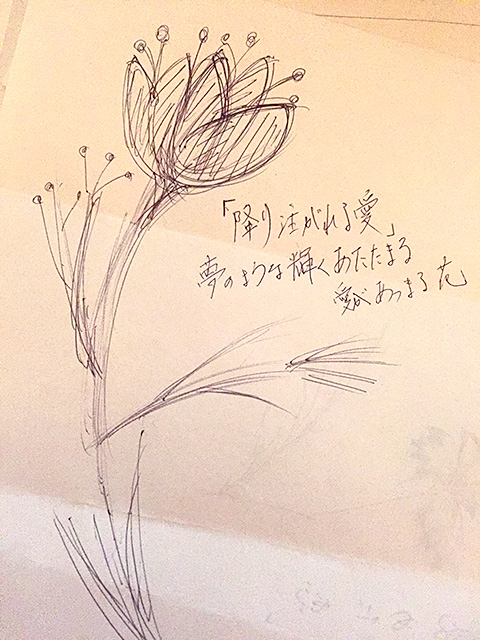 「降り注がれる愛」
夢のような輝くあたたまる
愛があつまる花